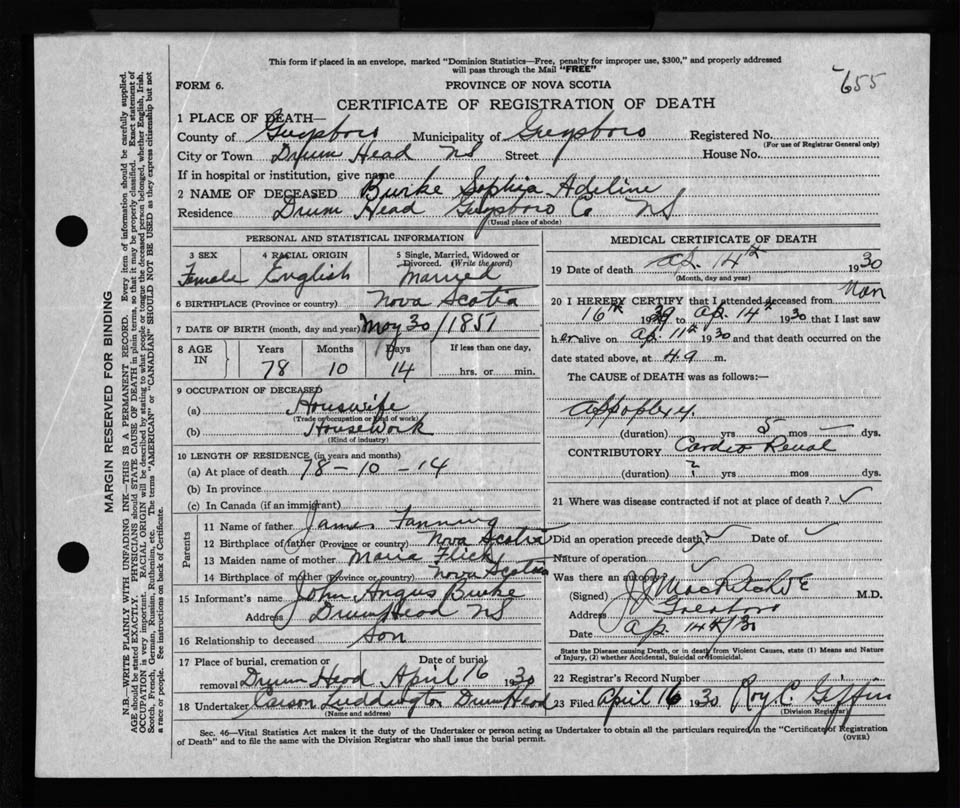 This form if placed in an envelope, marked "Dominion Statistics—Free, penalty for improper use, $300," and properly addressed
will pass through the Mail "FREE"
655
FORM 6.
PROVINCE OF NOVA SCOTIA
CERTIFICATE OF REGISTRATION OF DEATH
1 PLACE OF DEATH—
County of Guysboro Municipality of Guysboro Registered No.
(For use of Registrar General only)
City or Town Drum Head NS Street House No.
If in hospital or institution, give name
2 NAME OF DECEASED Burke Sophia Adeline
Residence Drum Head Guysboro Co NS
(Usual place of abode)
PERSONAL AND STATISTICAL INFORMATION
3 SEX 4 RACIAL ORIGIN 5 Single, Married, Widowed or Divorced. (Write the word)
Female English Married
6 BIRTHPLACE (Province or country) Nova Scotia
7 DATE OF BIRTH (month, day and year) May 30/1851
8 AGE IN Years Months Days If less than one day,
78 10 14 hrs. or min.
9 OCCUPATION OF DECEASED
(a) Houswife
(Trade occupation or kind of work)
(b) HouseWork
(Kind of industry)
10 LENGTH OF RESIDENCE (in years and months)
(a) At place of death 78 – 10 – 14
(b) In province
(c) In Canada (if an immigrant)
Parents
11 Name of father James Fanning
12 Birthplace of father (Province or country) Nova Scotia
13 Maiden name of mother Maria Flick
14 Birthplace of mother (Province or country) Nova Scotia
15 Informant's name John Angus Burke
Address Drum Head NS
16 Relationship to deceased Son
17 Place of burial, cremation or removal Drum Head Date of burial April 16 1930
18 Undertaker Carson Luddington Drum Head
(Name and address)
MEDICAL CERTIFICATE OF DEATH
19 Date of death Ap. 14th 1930
(Month, day and year)
20 I HEREBY CERTIFY that I attended deceased from
16th to Ap. 14th 1930 that I last saw
her alive on Ap. 11th 1930 and that death occurred on the
date stated above, at 4 a m.
The CAUSE of DEATH was as follows:—
Appoplexy.
(duration) yrs 5 mos dys.
CONTRIBUTORY Cardio Renal
(duration) ? yrs mos dys.
21 Where was disease contracted if not at place of death?
Did an operation precede death? Date of
Nature of operation
Was there an autopsy?
(Signed) M.D.
Address
Date Ap. 14th/30
State the Disease causing Death, or in death from Violent Causes, state (1) Means and Nature
of Injury, (2) whether Accidental, Suicidal or Homicidal.
22 Registrar's Record Number
23 Filed April 16 1930 Roy C. Giffin
(Division Registrar)
Sec. 46—Vital Statistics Act makes it the duty of the Undertaker or person acting as Undertaker to obtain all the particulars required in the "Certificate of Registration
of Death" and to file the same with the Division Registrar who shall issue the burial permit.
(OVER)
MARGIN RESERVED FOR BINDING
N.B.—WRITE PLAINLY WITH UNFADING INK—THIS IS A PERMANENT RECORD. Every item of information should be carefully supplied.
AGE should be stated EXACTLY. PHYSICIANS should STATE CAUSE OF DEATH in plain terms, so that it may be properly classified. Exact statement of
OCCUPATION is very important. RACIAL ORIGIN will be described by stating to what people or tongue the deceased person belonged, whether English, Irish,
Scotch, French, German, Russian, Ruthenian, etc. The terms "AMERICAN" or "CANADIAN" SHOULD NOT BE USED as they express citizenship but not
a race or people. See instructions on back of Certificate.